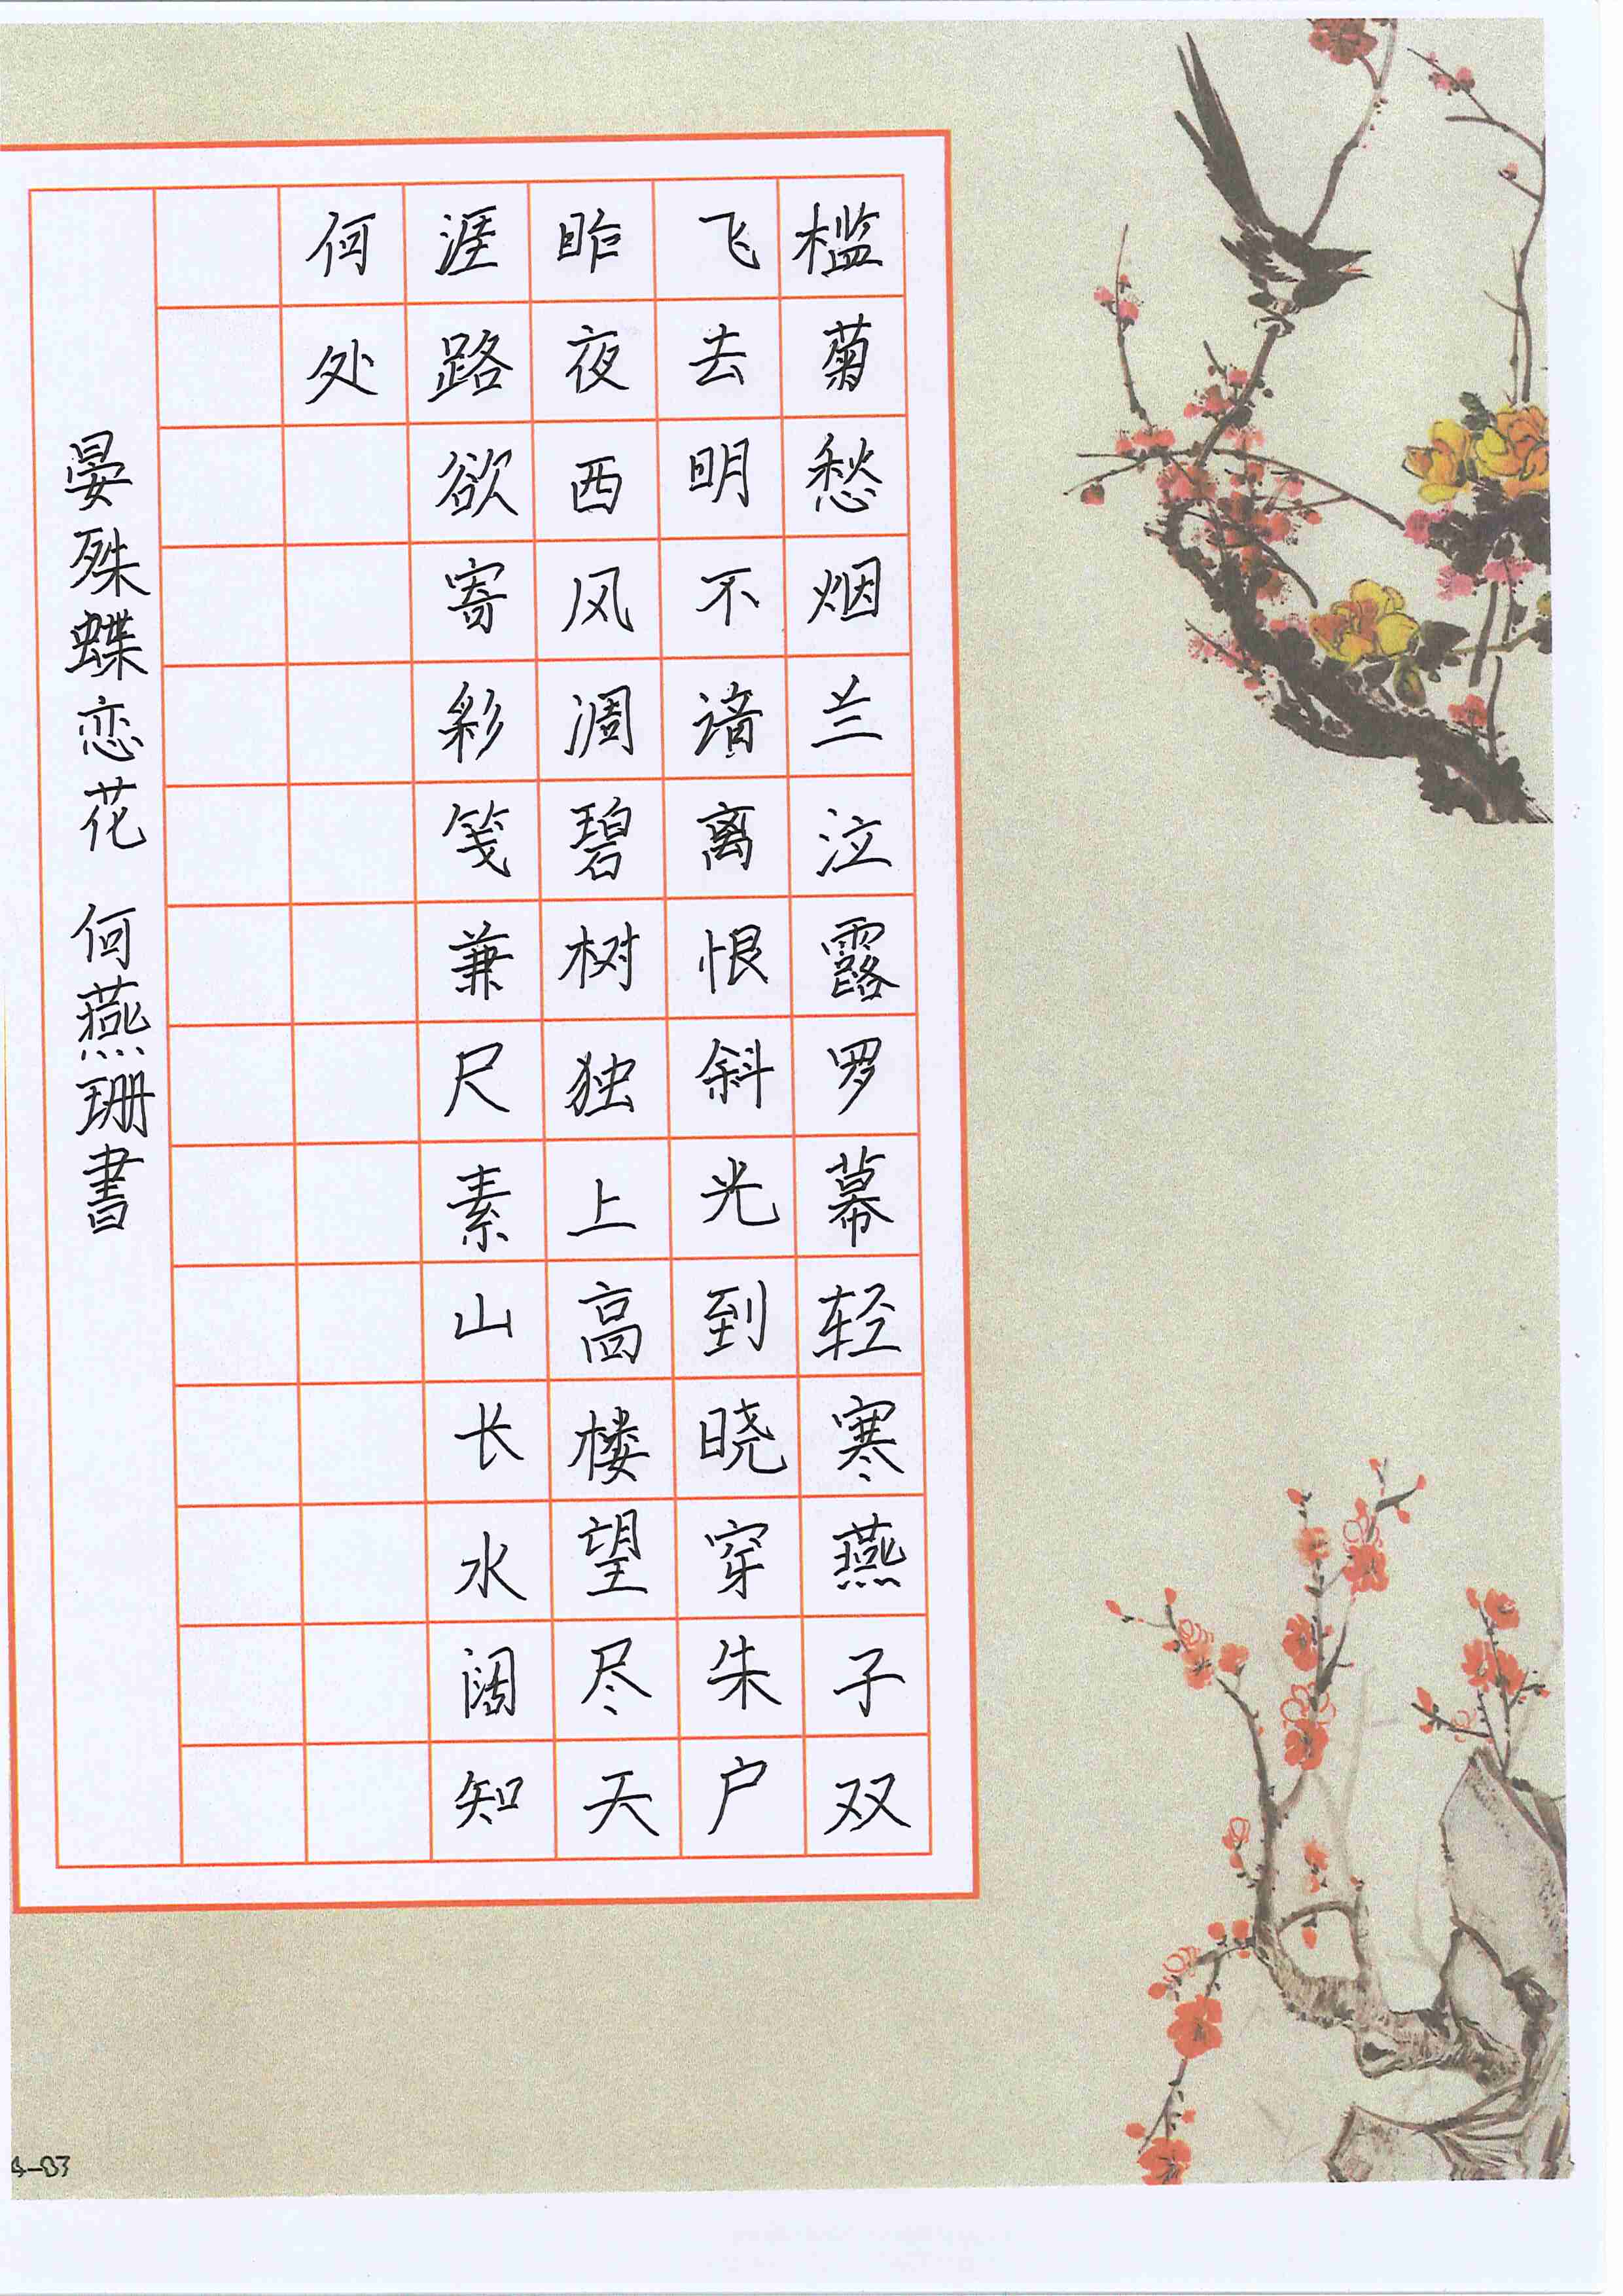 槛菊愁烟兰泣露罗幕轻寒燕子双
飞去明不谙离恨斜光到晓穿朱户
昨夜西风凋碧树独上高楼望尽天
涯路欲寄彩笺兼尺素山长水阔知
何处
晏殊蝶恋花 何燕珊書